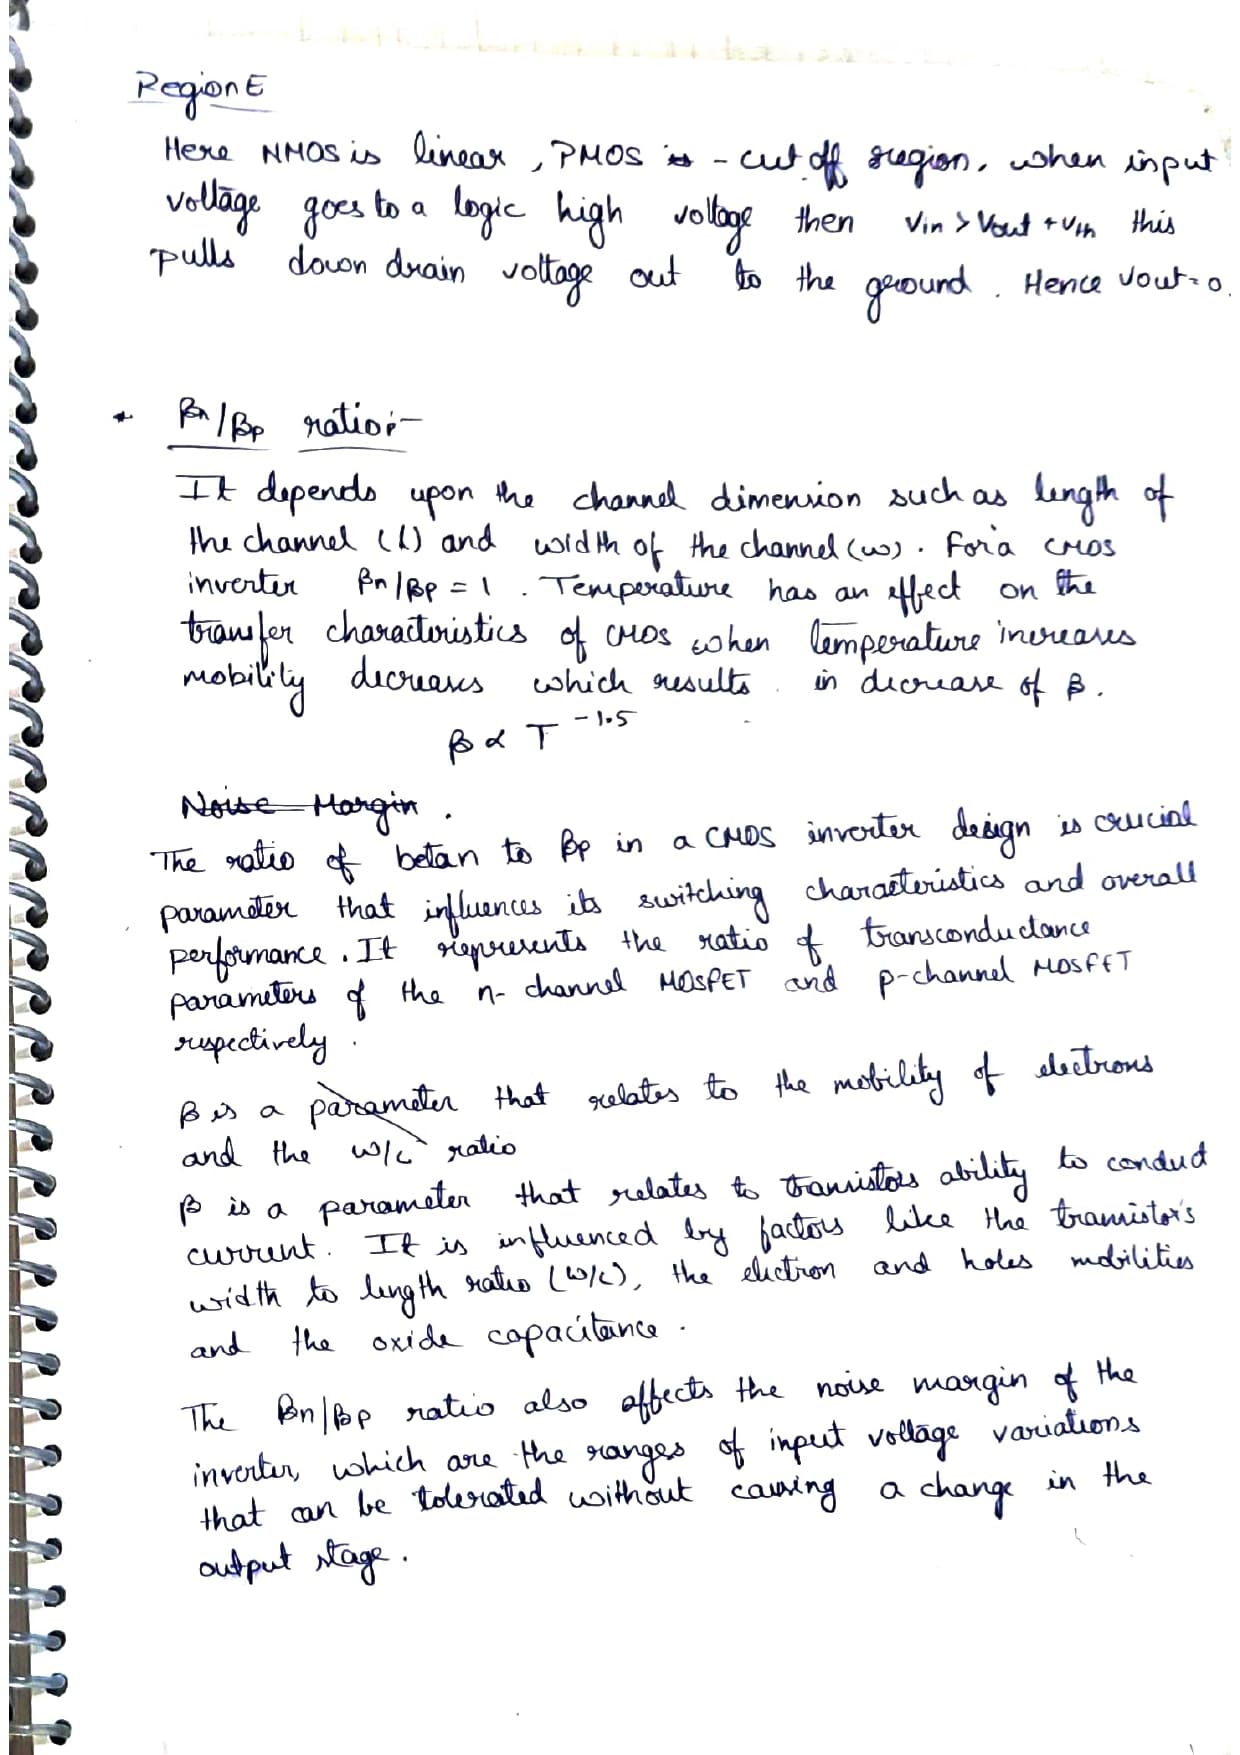 Region E
Here NMOS is linear, PMOS is - cut off region. when input
voltage goes to a logic high voltage then Vin > Vout + Vth this
pulls down drain voltage out to the ground. Hence Vout = 0.
* βn/βp ratio:-
It depends upon the channel dimension such as length of
the channel (L) and width of the channel (w). For a CMOS
inverter βn/βp = 1. Temperature has an effect on the
transfer characteristics of CMOS when temperature increases
mobility decreases which results in decrease of β.
β ∝ T^-1.5
Noise Margin.
The ratio of betan to βp in a CMOS inverter design is crucial
parameter that influences its switching characteristics and overall
performance. It represents the ratio of transconductance
parameters of the n-channel MOSFET and p-channel MOSFET
respectively.
β is a parameter that relates to the mobility of electrons
and the w/L ratio
β is a parameter that relates to transistors ability to conduct
current. It is influenced by factors like the transistor's
width to length ratio (w/L), the electron and holes mobilities
and the oxide capacitance.
The βn/βp ratio also affects the noise margin of the
inverter, which are the ranges of input voltage variations
that can be tolerated without causing a change in the
output stage.